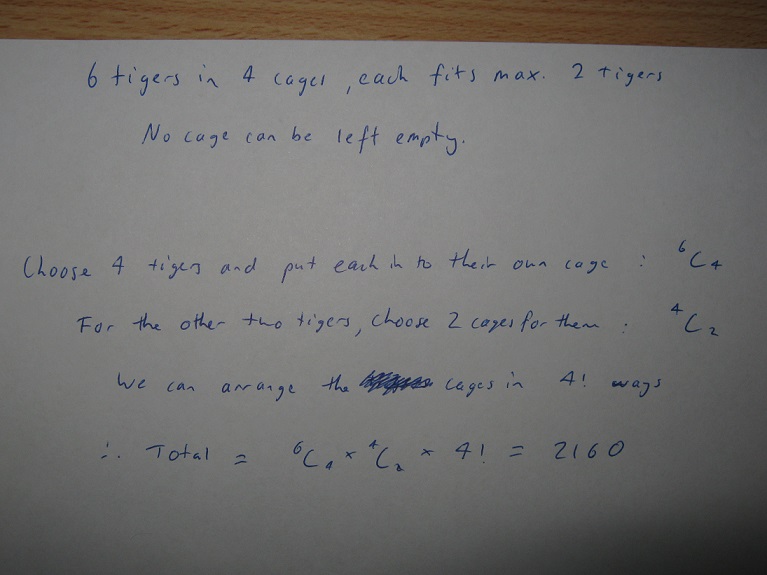 6 tigers in 4 cages, each fits max. 2 tigers
No cage can be left empty.
Choose 4 tigers and put each in to their own cage : ⁶C₄
For the other two tigers, choose 2 cages for them : ⁴C₂
We can arrange the cages in 4! ways
∴ Total = ⁶C₄ × ⁴C₂ × 4! = 2160